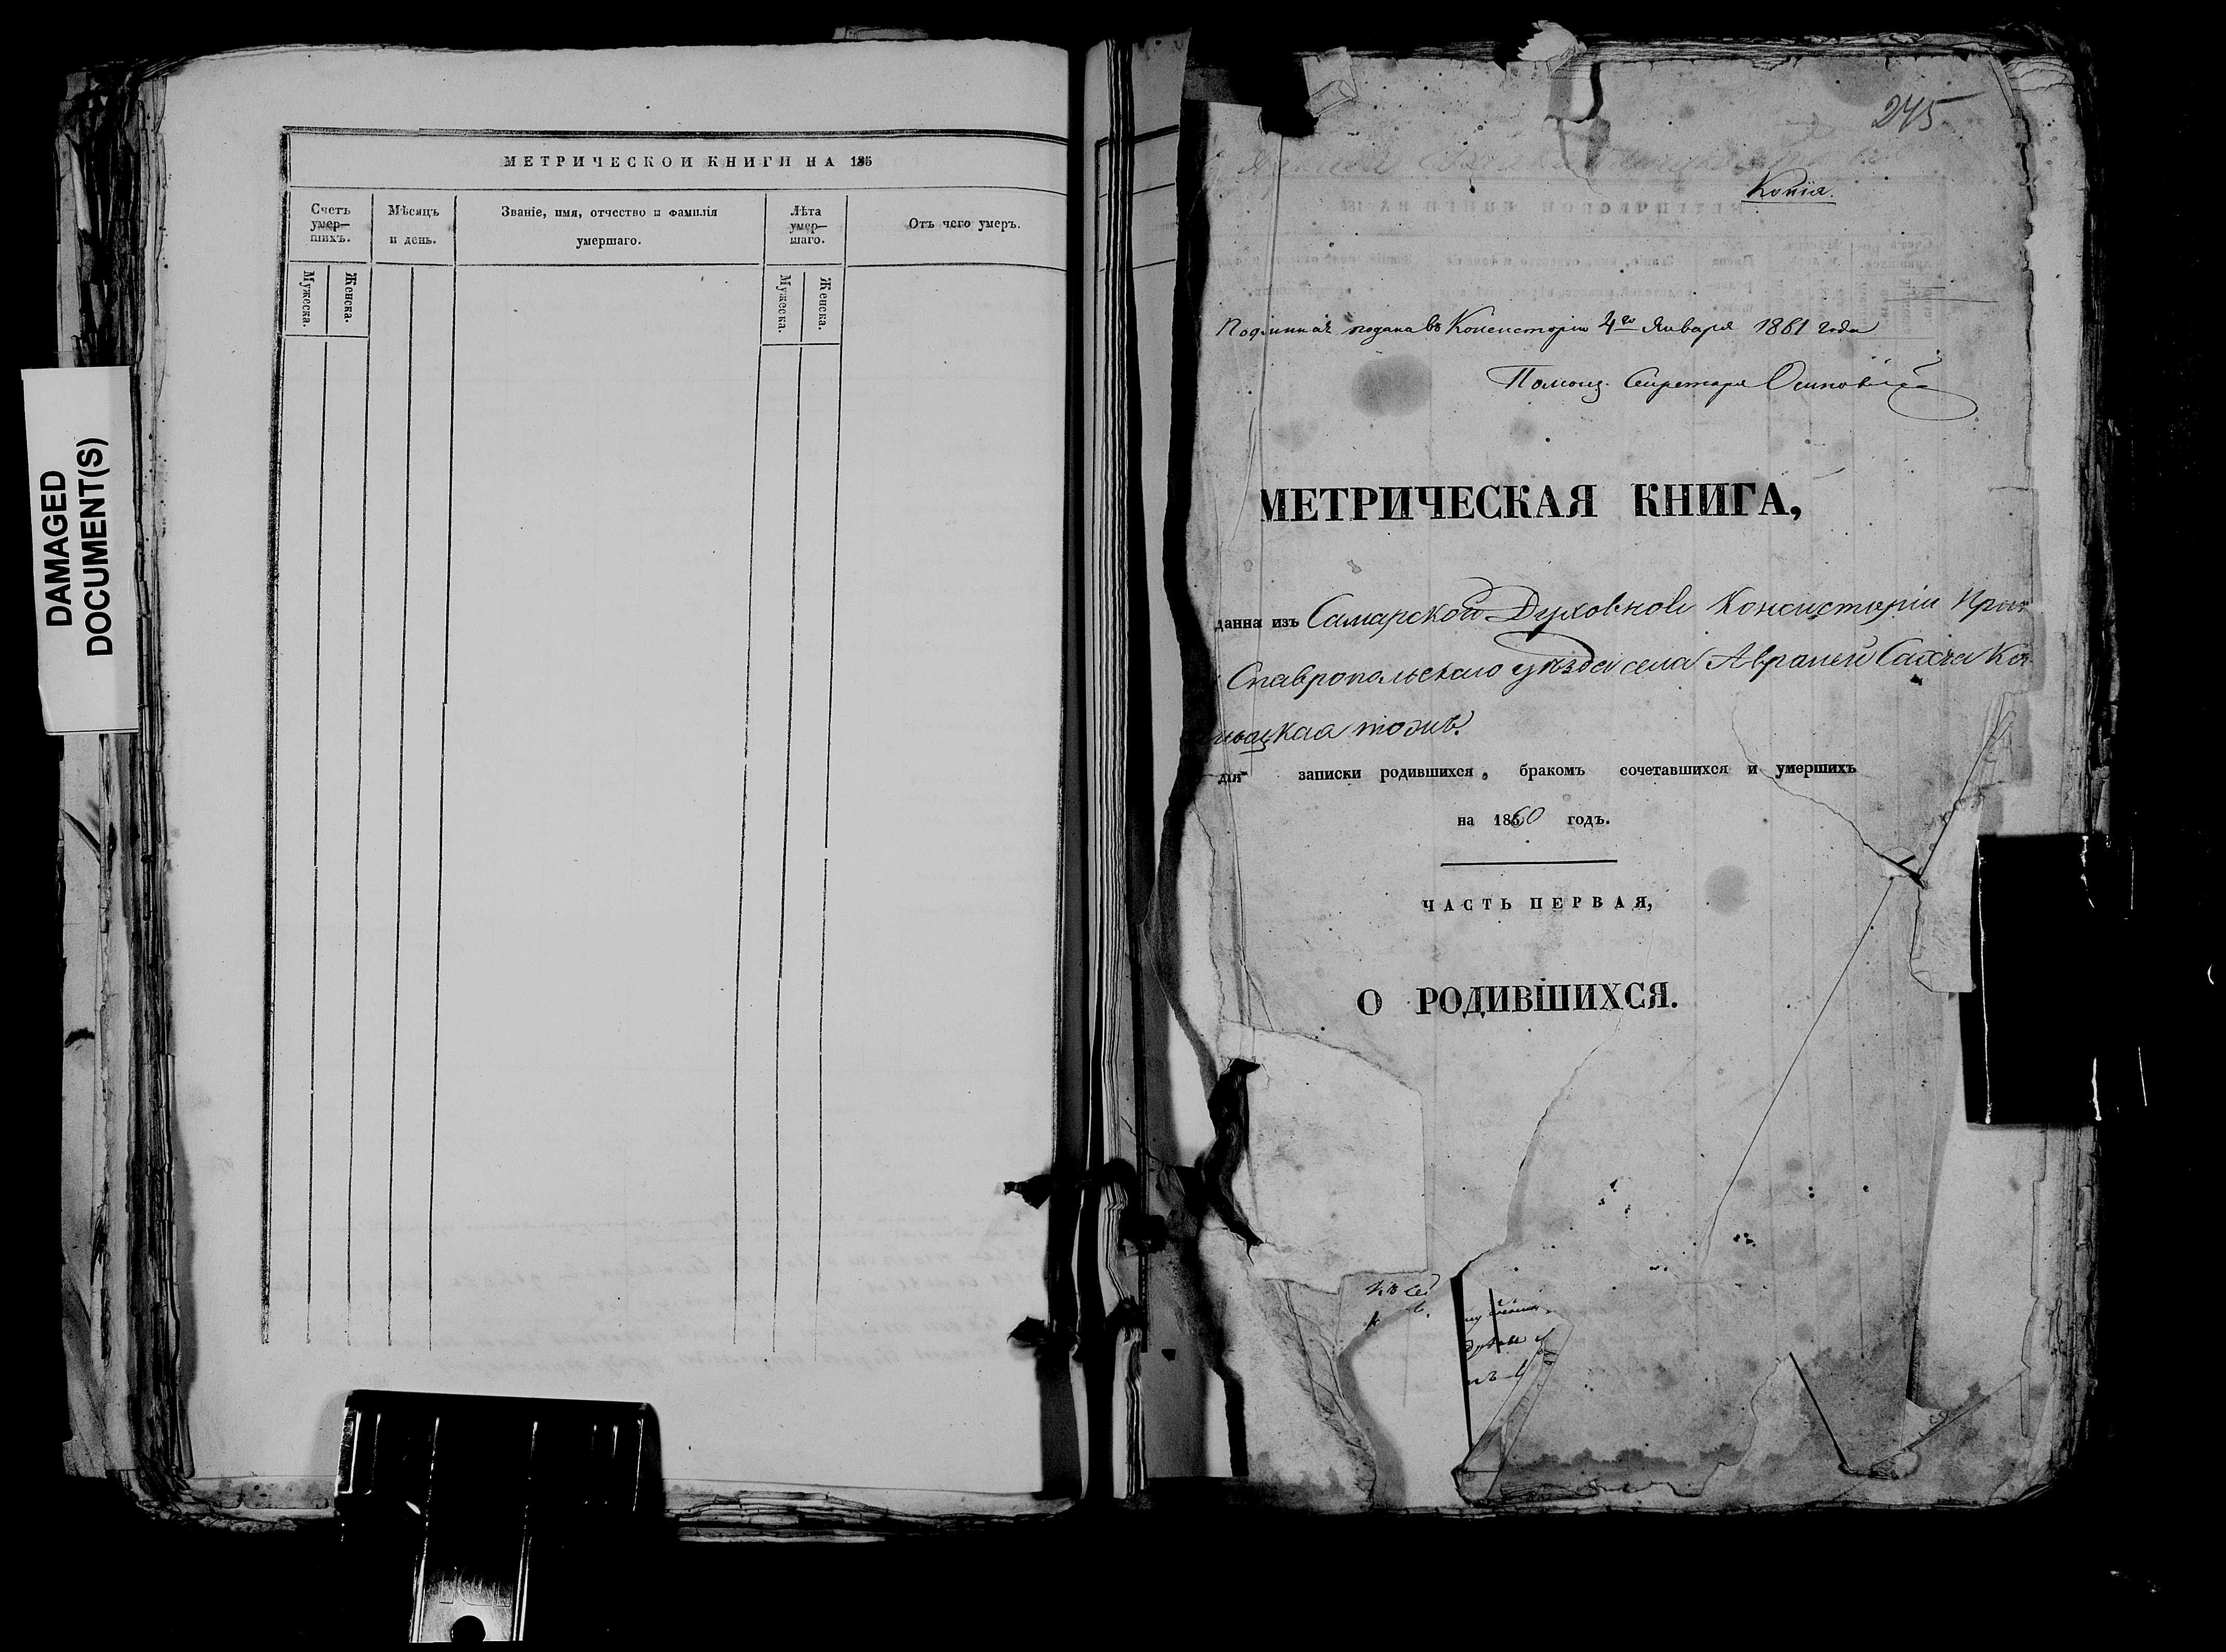 DAMAGED
DOCUMENT(S)
МЕТРИЧЕСКОИ КНИГИ НА 185
Счетъ умер— шихъ.
Мѣсяцъ и день.
Званіе, имя, отчество и фамилія умершаго.
Лѣта умер— шаго.
Отъ чего умеръ.
Мужеска.
Женска.
Мужеска.
Женска.
245
Копія.
Подлинная подана въ Консисторію 4го Января 1861 года
Помощ. Секретаря
МЕТРИЧЕСКАЯ КНИГА,
данна изъ Самарской Духовной Консисторіи
Ставропольскаго уѣзда села
для записки родившихся, бракомъ сочетавшихся и умершихъ
на 1860 годъ.
ЧАСТЬ ПЕРВАЯ,
О РОДИВШИХСЯ.